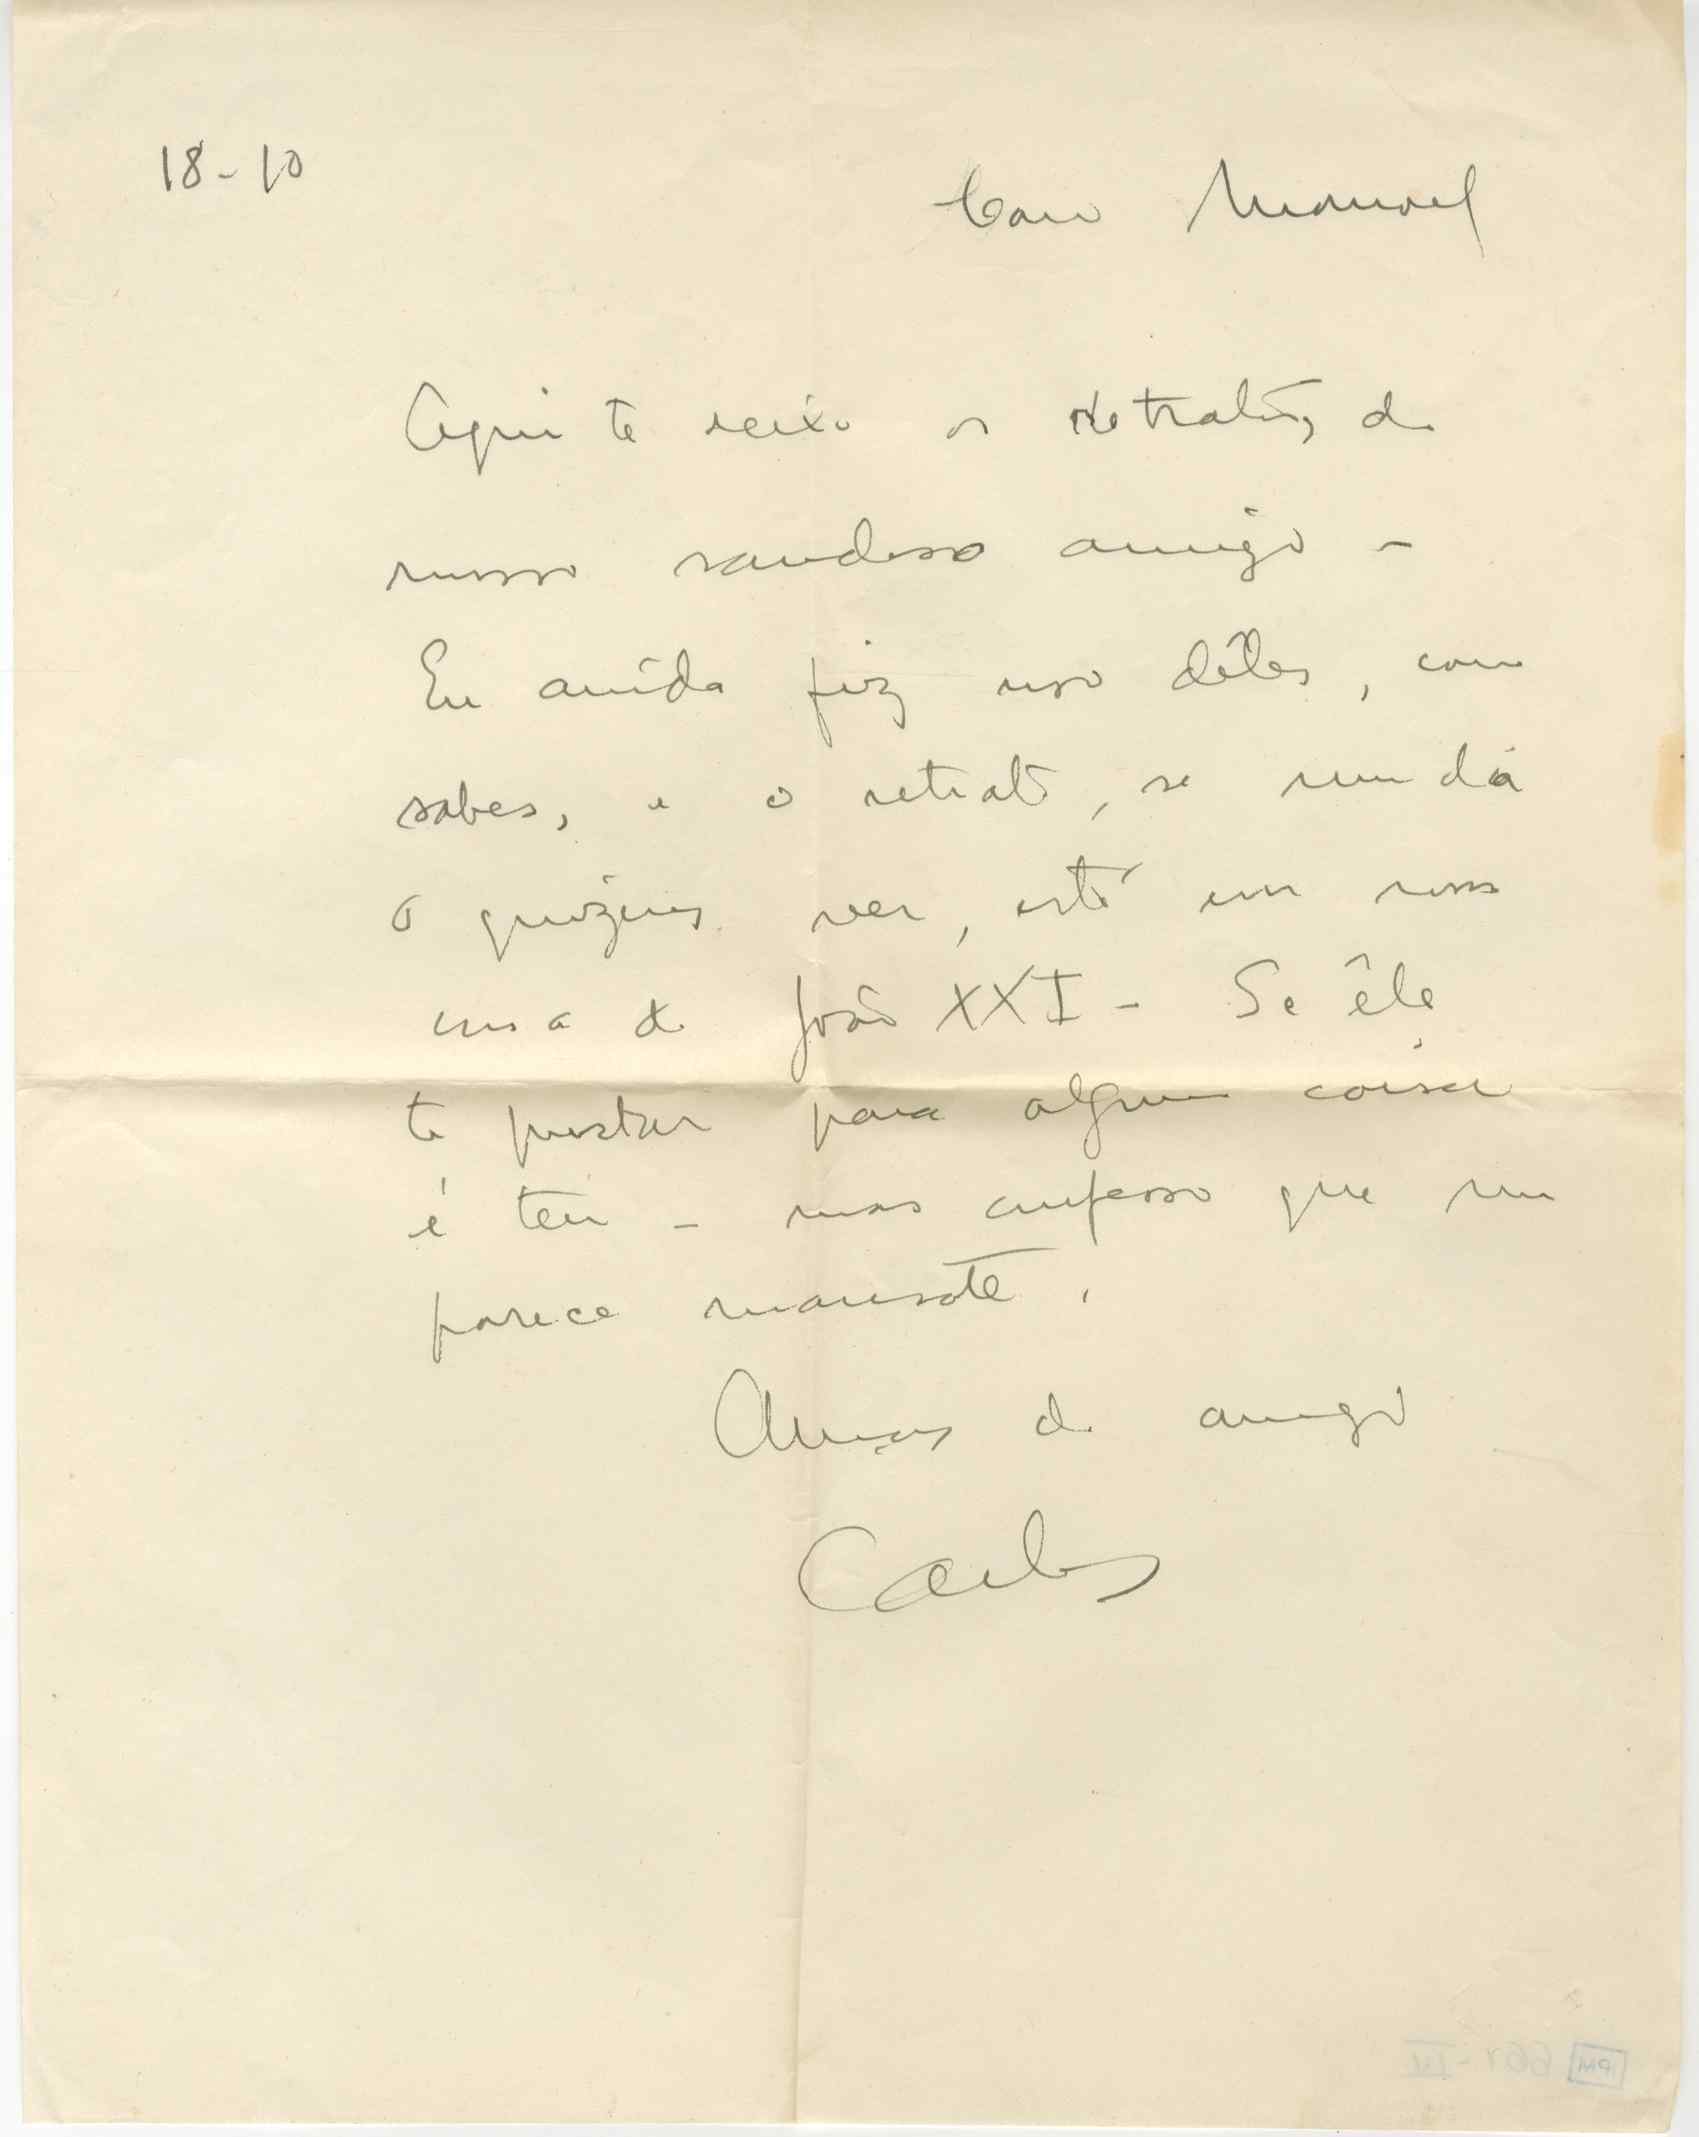 18-10
Caro Manoel
Aqui te deixo os retratos do
nosso saudoso amigo -
Eu ainda fiz uso dêles, como
sabes, e o retrato, se um dia
o quizeres ver, está em nossa
casa de João XXI - Se êle
te prestar para alguma coisa
é teu - mas confesso que me
parece mansote.
Abraços do amigo
Carlos